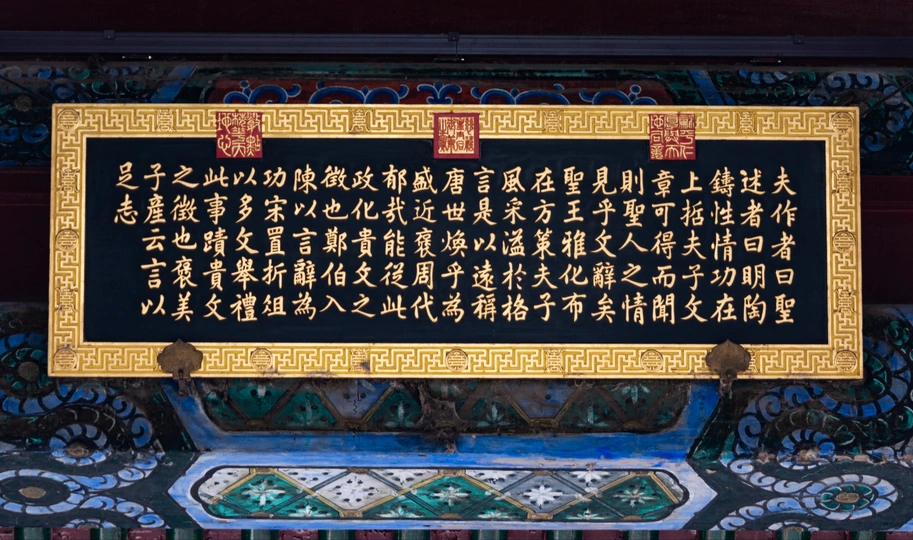 夫作者曰聖
述者曰明陶
鑄性情功在
上哲夫子文
章可得而聞
則聖人之情
見乎文辭矣
聖王雅化布
在方策夫子
風采溢於格
言是以遠稱
唐世煥乎為
盛近褒周代
郁哉能從此
政化貴文之
徵也鄭伯入
陳以言辭為
功宋置折俎
以多文舉禮
此事蹟貴文
之徵也褒美
子產云言以
足志